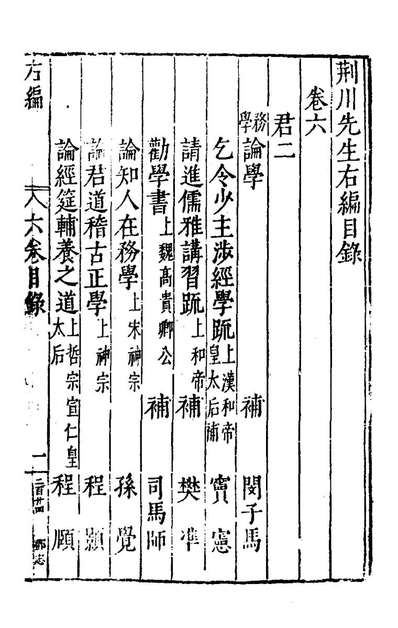 荆川先生右編目錄
卷六
君二
務學 論學 補 閔子馬
乞令少主涉經學疏 上漢和帝皇太后補 竇憲
請進儒雅講習疏 上和帝 補 樊準
勸學書 上魏高貴鄉公 補 司馬師
論知人在務學 上宋神宗 孫覺
論君道稽古正學 上神宗 程顥
論經筵輔養之道 上哲宗宣仁皇太后 程頤
右編
六卷目錄
一
二百廿四